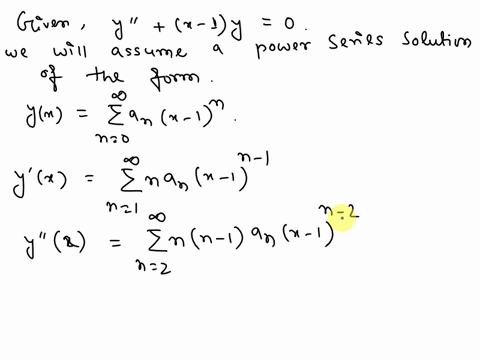 Given, y" + (x-1)y = 0.
we will assume a power series solution
of the form.
y(x) = ∞∑n=0 aₙ (x-1)ⁿ.
y'(x) = ∞∑n=1 n aₙ (x-1)ⁿ⁻¹
y"(x) = ∞∑n=2 n(n-1) aₙ (x-1)ⁿ⁻²